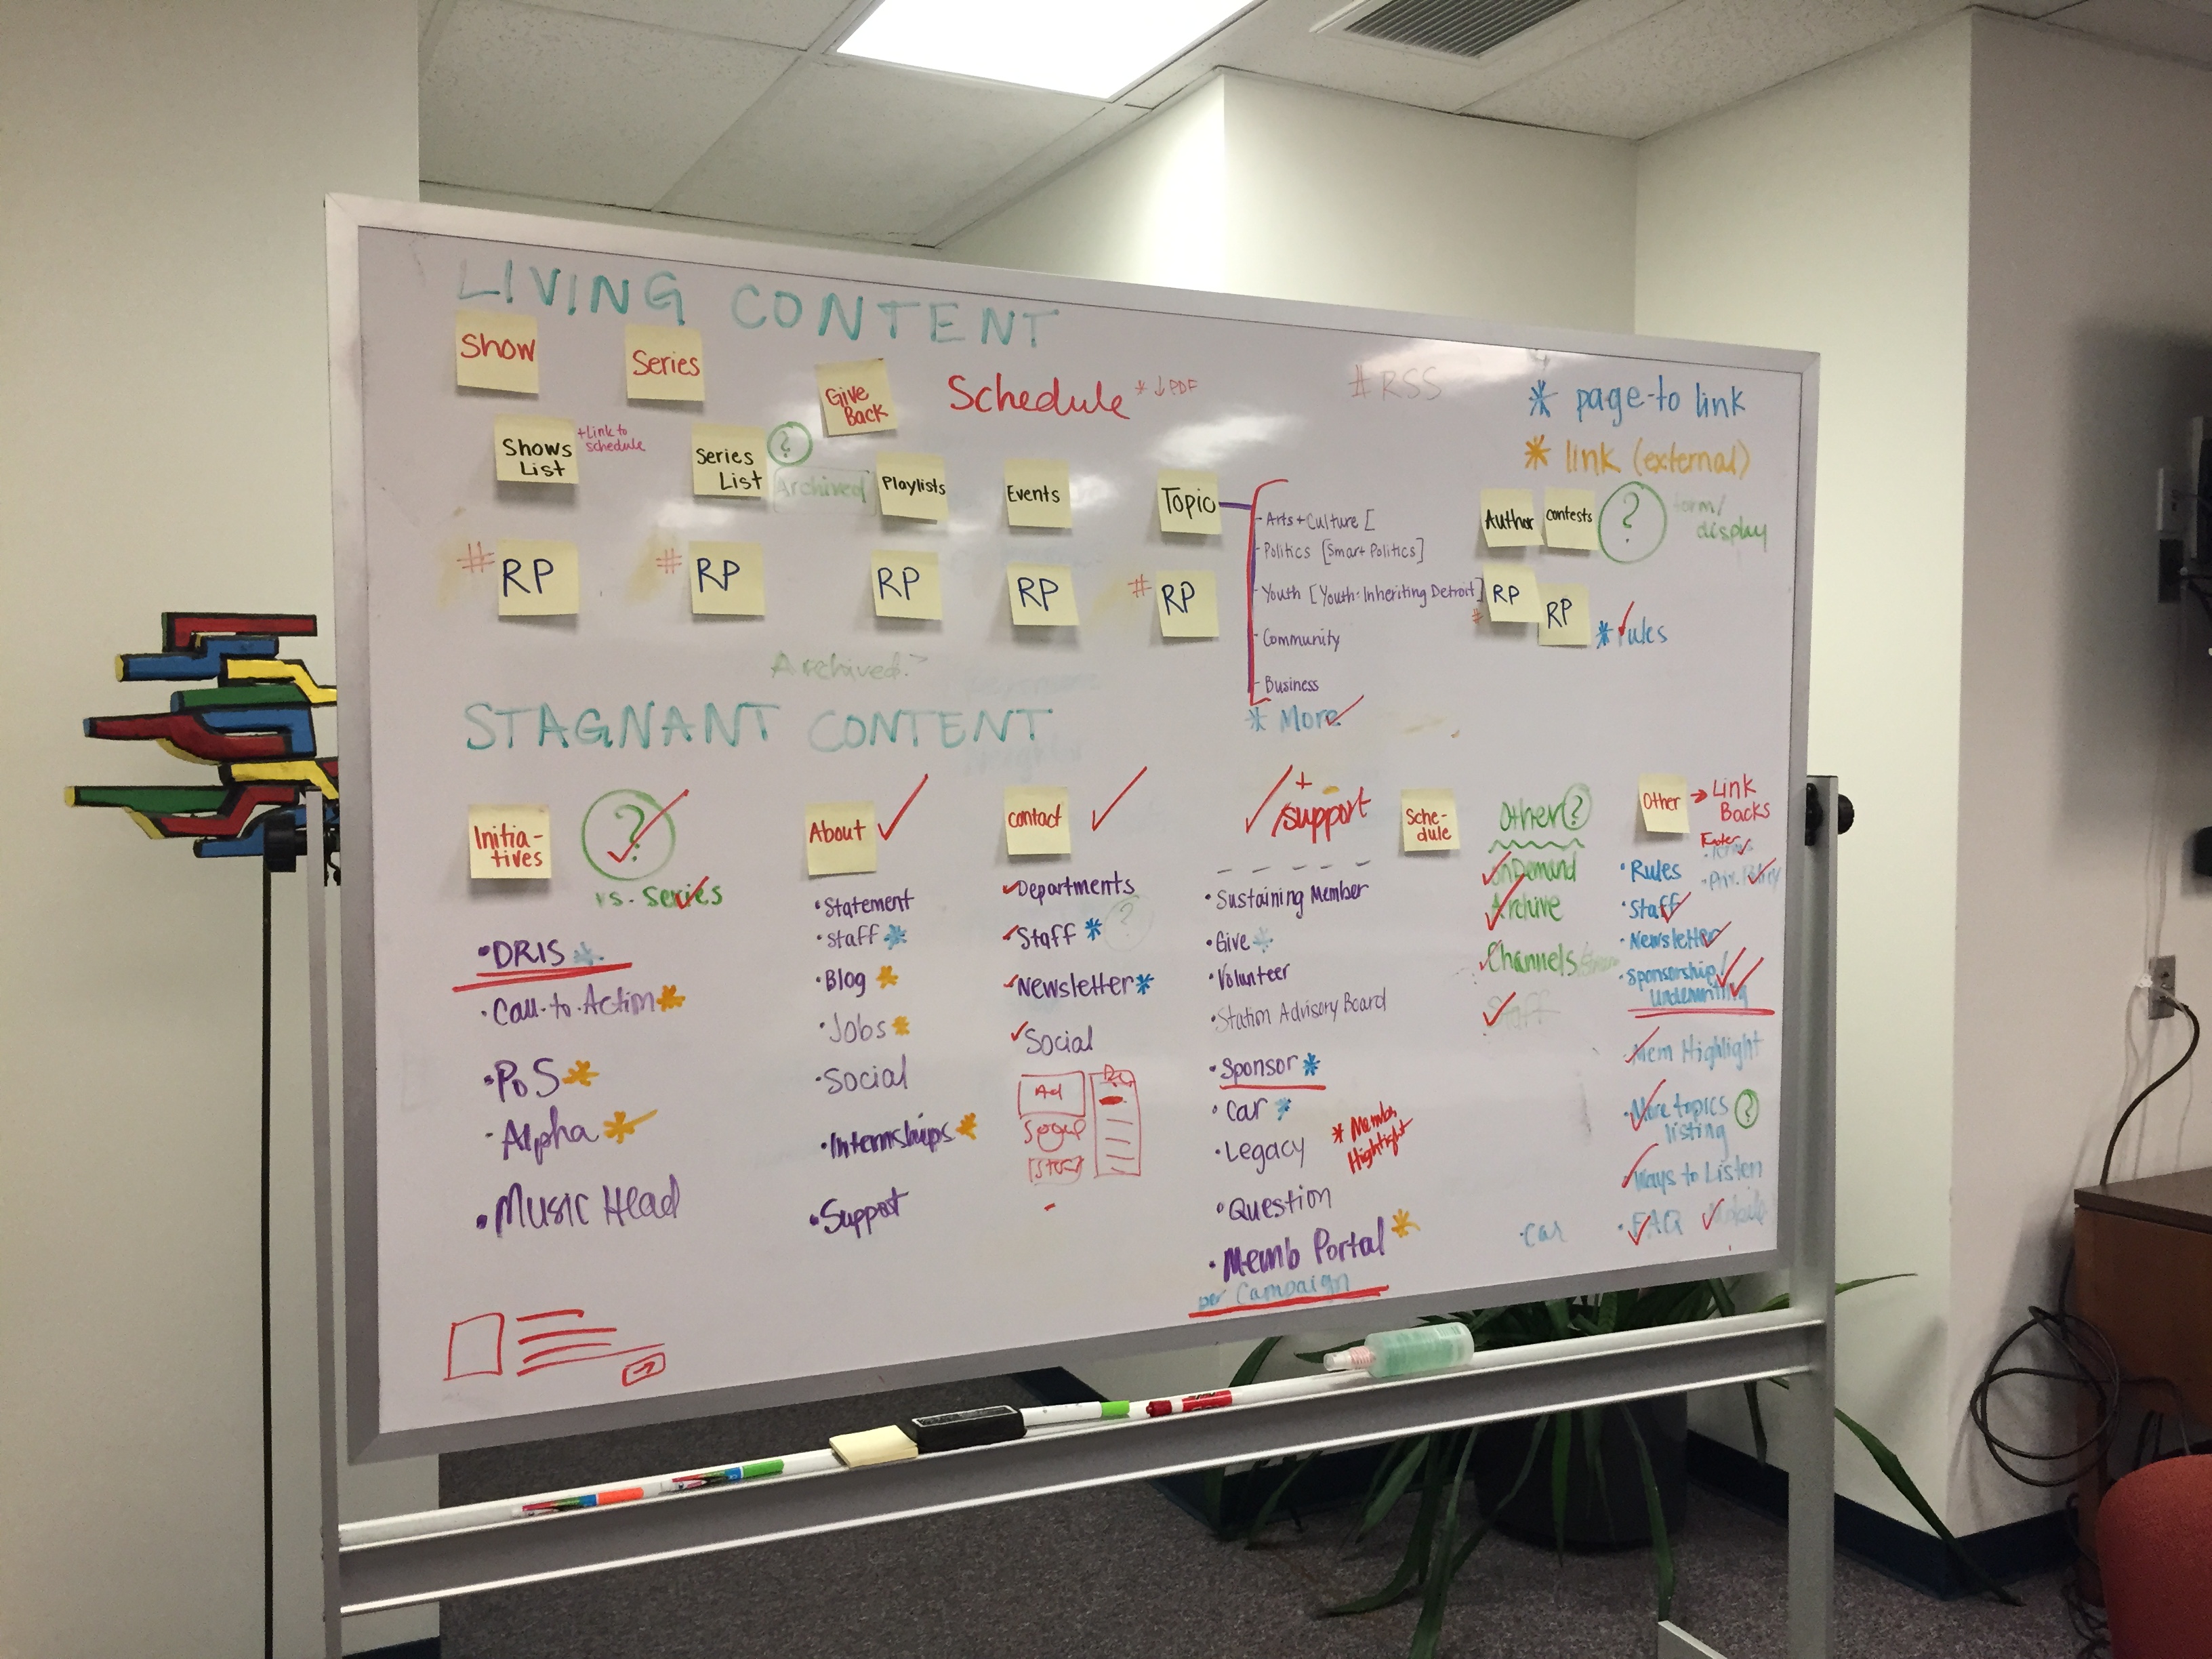 LIVING CONTENT
Show
Series
Give
Back
Schedule * ↓ PDF
# RSS
* page-to link
* link (external)
Shows
List
+Link to
schedule
Series
List
?
Archived
Playlists
Events
Topic
- Arts + Culture [
- Politics [Smart Politics]
- Youth [Youth-Inheriting Detroit]
- Community
- Business
* More
Author
contests
?
display
# RP
# RP
RP
RP
# RP
RP
#
RP
* rules
Archived?
STAGNANT CONTENT
Initia-
tives
?
vs. series
• DRIS *
• Call-to-Action *
• PoS *
- Alpha *
• Music Head
About
• Statement
• Staff *
• Blog *
• Jobs *
• Social
• Internships *
• Support
contact
Departments
Staff *
?
Newsletter *
Social
Ad
+
/support
• Sustaining Member
• Give *
• Volunteer
• Station Advisory Board
• Sponsor *
• Car *
• Legacy
* Member
Highlight
• Question
• Memb Portal *
per Campaign
Sche-
dule
Other ?
OnDemand
Archive
Channels
Staff
• Car
Other
→ Link
Backs
Footer
• Terms
• Priv. Policy
• Rules
• Staff
• Newsletter
• Sponsorship/
Underwriting
Mem Highlight
• More topics
listing
?
Ways to Listen
• FAQ
Mobile